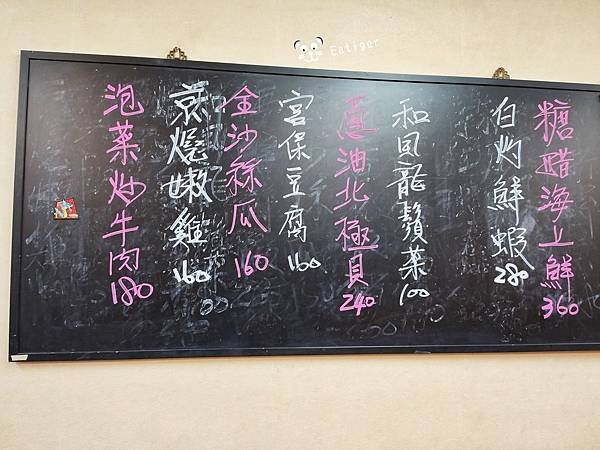 Eatiger
糖醋海上鮮 360
白灼鮮蝦 280
和風龍鬚菜 100
蔥油北極貝 240
宮保豆腐 160
金沙絲瓜 160
京燒嫩雞 160
泡菜炒牛肉 180